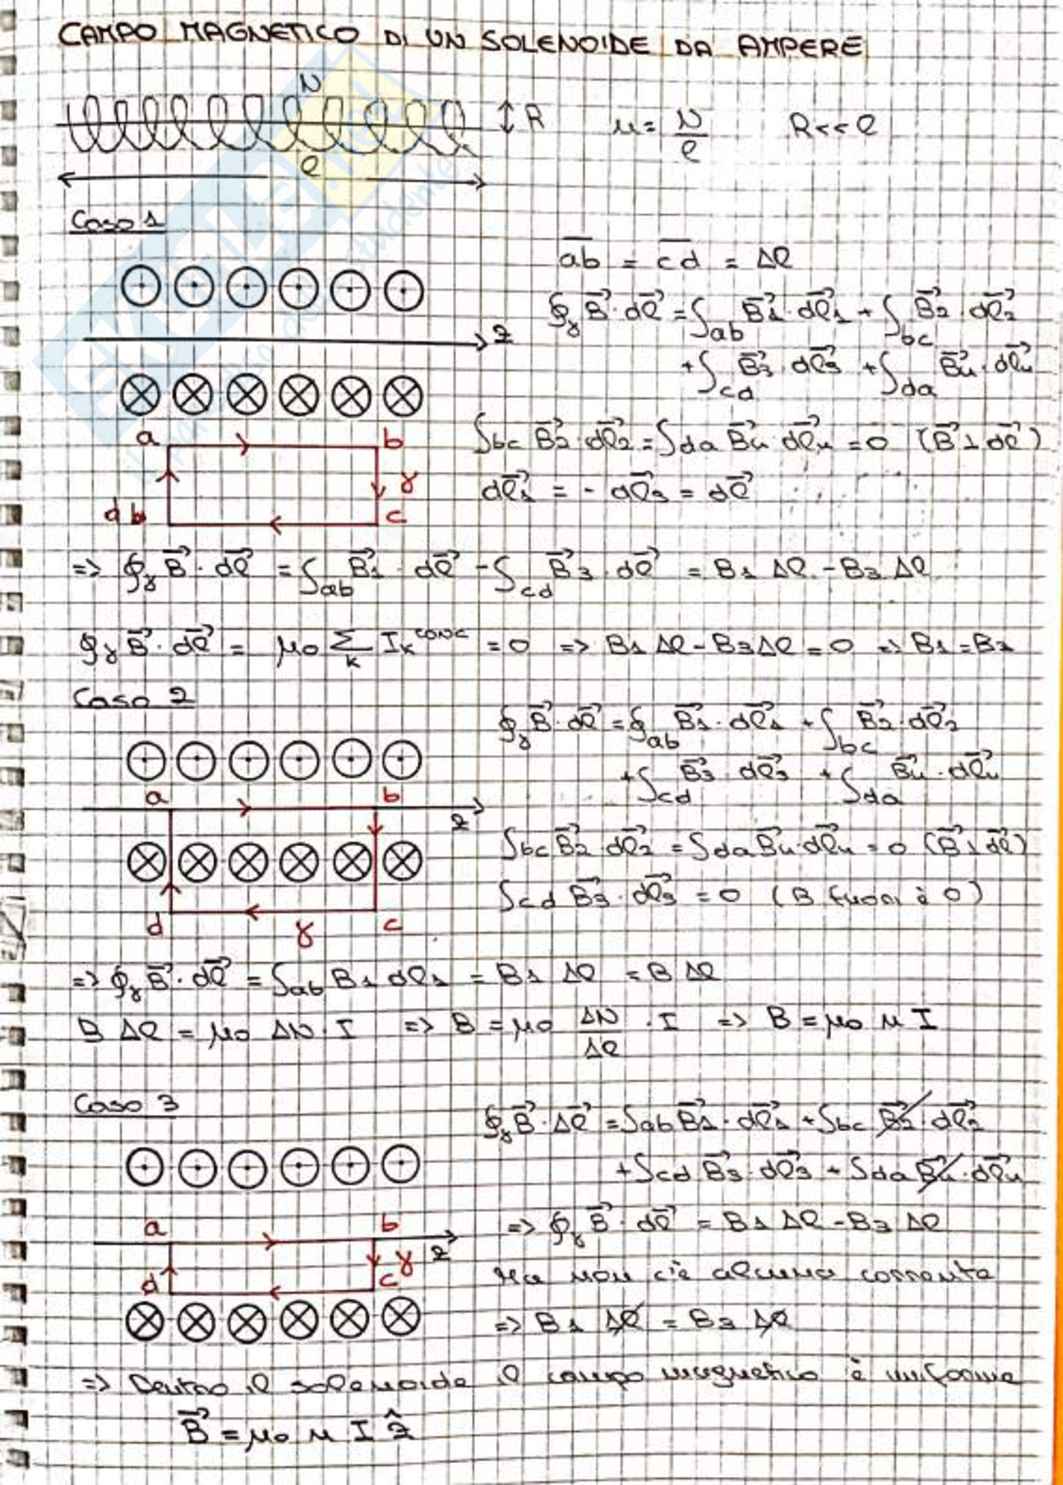 CAMPO MAGNETICO DI UN SOLENOIDE DA AMPERE
N
R
n = N/ℓ    R<<ℓ
ℓ
Caso 1
ab = cd = Δℓ
∮γ B⃗·dℓ⃗ = ∫ab B⃗1·dℓ⃗1 + ∫bc B⃗2·dℓ⃗2
z
+∫cd B⃗3·dℓ⃗3 + ∫da B⃗4·dℓ⃗4
a b
∫bc B⃗2·dℓ⃗2 = ∫da B⃗4·dℓ⃗4 = 0 (B⃗⊥dℓ⃗)
γ
dℓ⃗1 = -dℓ⃗3 = dℓ⃗
d c
=> ∮γ B⃗·dℓ⃗ = ∫ab B⃗1·dℓ⃗ - ∫cd B⃗3·dℓ⃗ = B1 Δℓ - B3 Δℓ
∮γ B⃗·dℓ⃗ = μ0 Σk Ik^conc = 0 => B1 Δℓ - B3 Δℓ = 0 => B1 = B3
Caso 2
∮γ B⃗·dℓ⃗ = ∮ab B⃗1·dℓ⃗1 + ∫bc B⃗2·dℓ⃗2
+∫cd B⃗3·dℓ⃗3 + ∫da B⃗4·dℓ⃗4
a b
z
∫bc B⃗2·dℓ⃗2 = ∫da B⃗4·dℓ⃗4 = 0 (B⃗⊥dℓ⃗)
∫cd B⃗3·dℓ⃗3 = 0 (B fuori è 0)
d γ c
=> ∮γ B⃗·dℓ⃗ = ∫ab B1 dℓ1 = B1 Δℓ = B Δℓ
B Δℓ = μ0 ΔN·I => B = μ0 ΔN/Δℓ ·I => B = μ0 n I
Caso 3
∮γ B⃗·Δℓ⃗ = ∫ab B⃗1·dℓ⃗1 + ∫bc B⃗2·dℓ⃗2
+∫cd B⃗3·dℓ⃗3 + ∫da B⃗4·dℓ⃗4
a b
z
γ
=> ∮γ B⃗·dℓ⃗ = B1 Δℓ - B3 Δℓ
d c
Ma non c'è alcuna corrente
=> B1 Δℓ = B3 Δℓ
=> Dentro il solenoide il campo magnetico è uniforme
B⃗ = μ0 n I ẑ